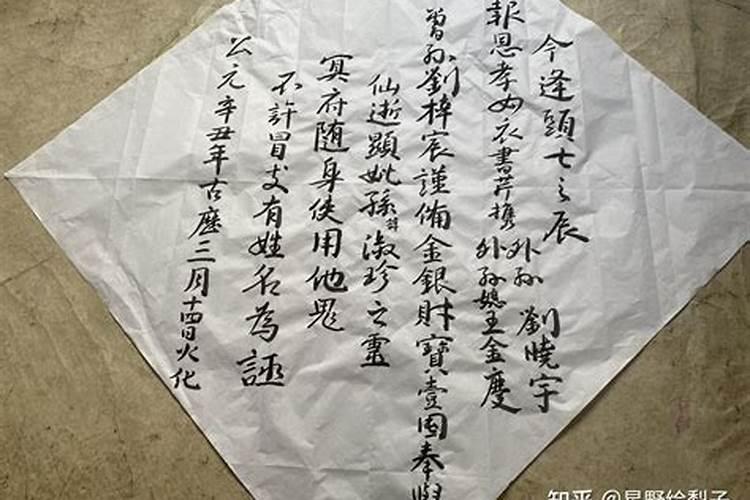 今逢頭七之辰
報恩孝女衣書芹携
外孙 劉曉宇
外孙媳王金慶
曾孙劉梓宸謹俻金銀財寶壹囤奉與
仙逝顯妣孫諱淑珍之靈
冥府随身使用他鬼
不許冒支有姓名為
公元辛丑年古歷三月十四日火化
知乎 @星野绘梨子